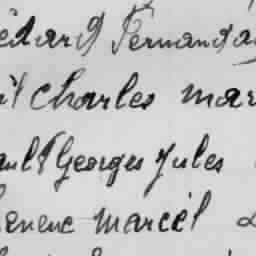 édard Fernand
it Charles mar
ault Georges Jules
Marcel